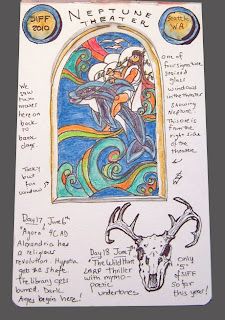 SIFF
2010
NEPTUNE
THEATER
Seattle
WA
We saw
two movies
here on
back to
back days
Tacky
but
fun
window
one of
four signature
stained
glass
windows
in the theater
showing
Neptune.
This one is
from the
right side
of the
theatre.
Day 17 June 6th
"Agora" 4 C AD
Alexandria has
a religious
revolution. Hypatia
gets the shaft.
The library gets
burned. Dark
Ages begin here!
Day 18 June 7th
"The Wild Hunt"
LARP thriller
with mythopoetic
undertones
only
5
of SIFF
So far
this year!